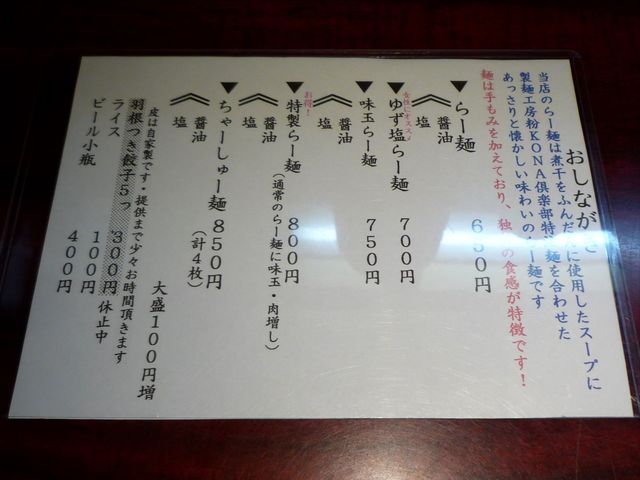 おしながき
当店のらー麺は煮干をふんだんに使用したスープに
製麺工房粉KONA倶楽部特製麺を合わせた
あっさりと懐かしい味わいのらー麺です
麺は手もみを加えており、独自の食感が特徴です！
▼らー麺 650円
醤油
塩
女性にオススメ
▼ゆず塩らー麺 700円
▼味玉らー麺 750円
醤油
塩
お得！
▼特製らー麺 800円
(通常のらー麺に味玉・肉増し)
醤油
塩
▼ちゃーしゅー麺 850円
醤油 (計4枚)
塩
大盛100円増
皮は自家製です・提供まで少々お時間頂きます
羽根つき餃子5つ 300円 休止中
ライス 100円
ビール小瓶 400円